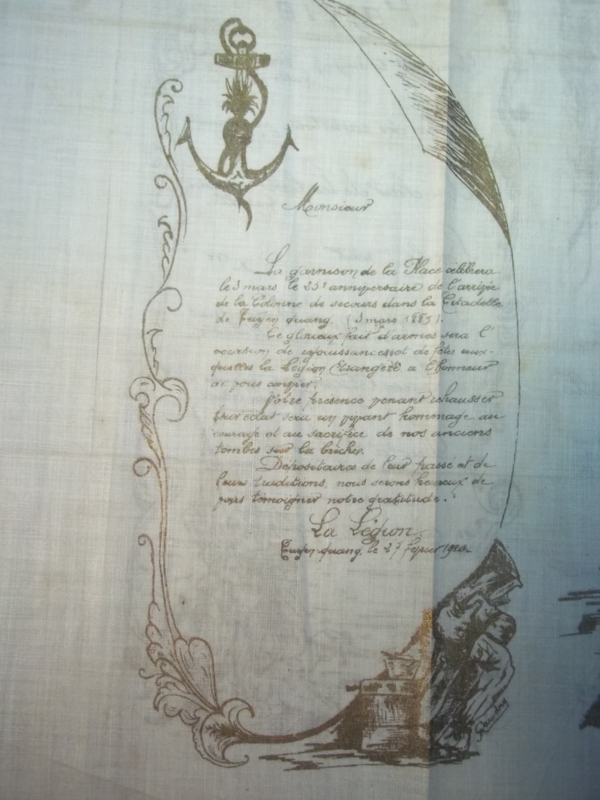 Monsieur
La garnison de la Place célèbrera
le 3 mars le 25e anniversaire de l'arrivée
de la Colonne de secours dans la Citadelle
de Tuyen quang. (3 mars 1885).
Ce glorieux fait d'armes sera l'
occasion de réjouissances et de fêtes aux-
quelles la Légion Etrangère a l'honneur
de vous convier.
Votre présence venant rehausser
leur éclat sera un vivant hommage au
courage et au sacrifice de nos anciens
tombés sur la brèche.
Dépositaires de leur passé et de
leurs traditions, nous serons heureux de
vous témoigner notre gratitude.
La Légion.
Tuyen quang, le 27 février 1910.